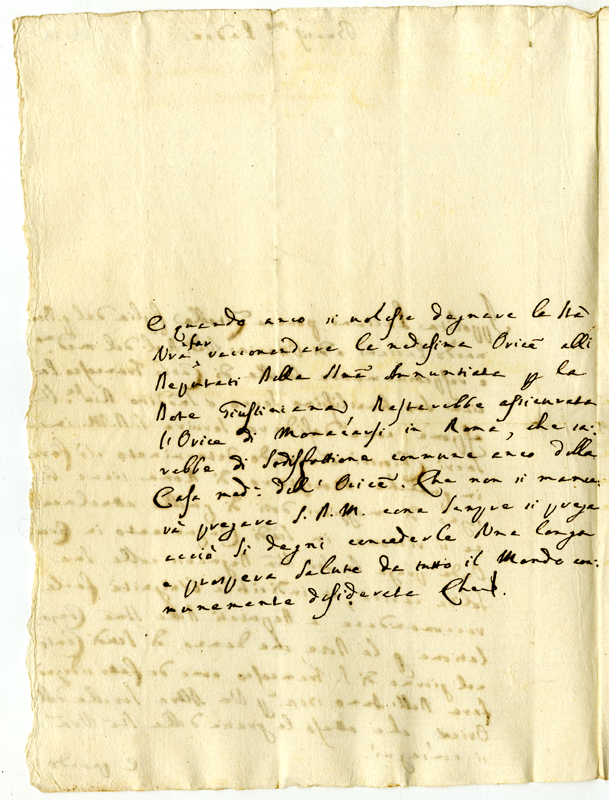 E quando anco si volesse degnare la Stà
Vrà far raccomandare la medesima Oricē alli
Deputati della SSmā Annuntiata p la
Dote Giustiniana, Restarebbe assicurata
l'Orice di Monacarsi in Roma, che sa:
rebbe di Sodisfattione commune anco della
Casa med.ª dell' Oricē. Che non si manca:
rà pregare S. D. M. come sempre si prega
acciò si degni concederle Una longa
e prospera salute da tutto il Mondo com:
munemente desiderata Che